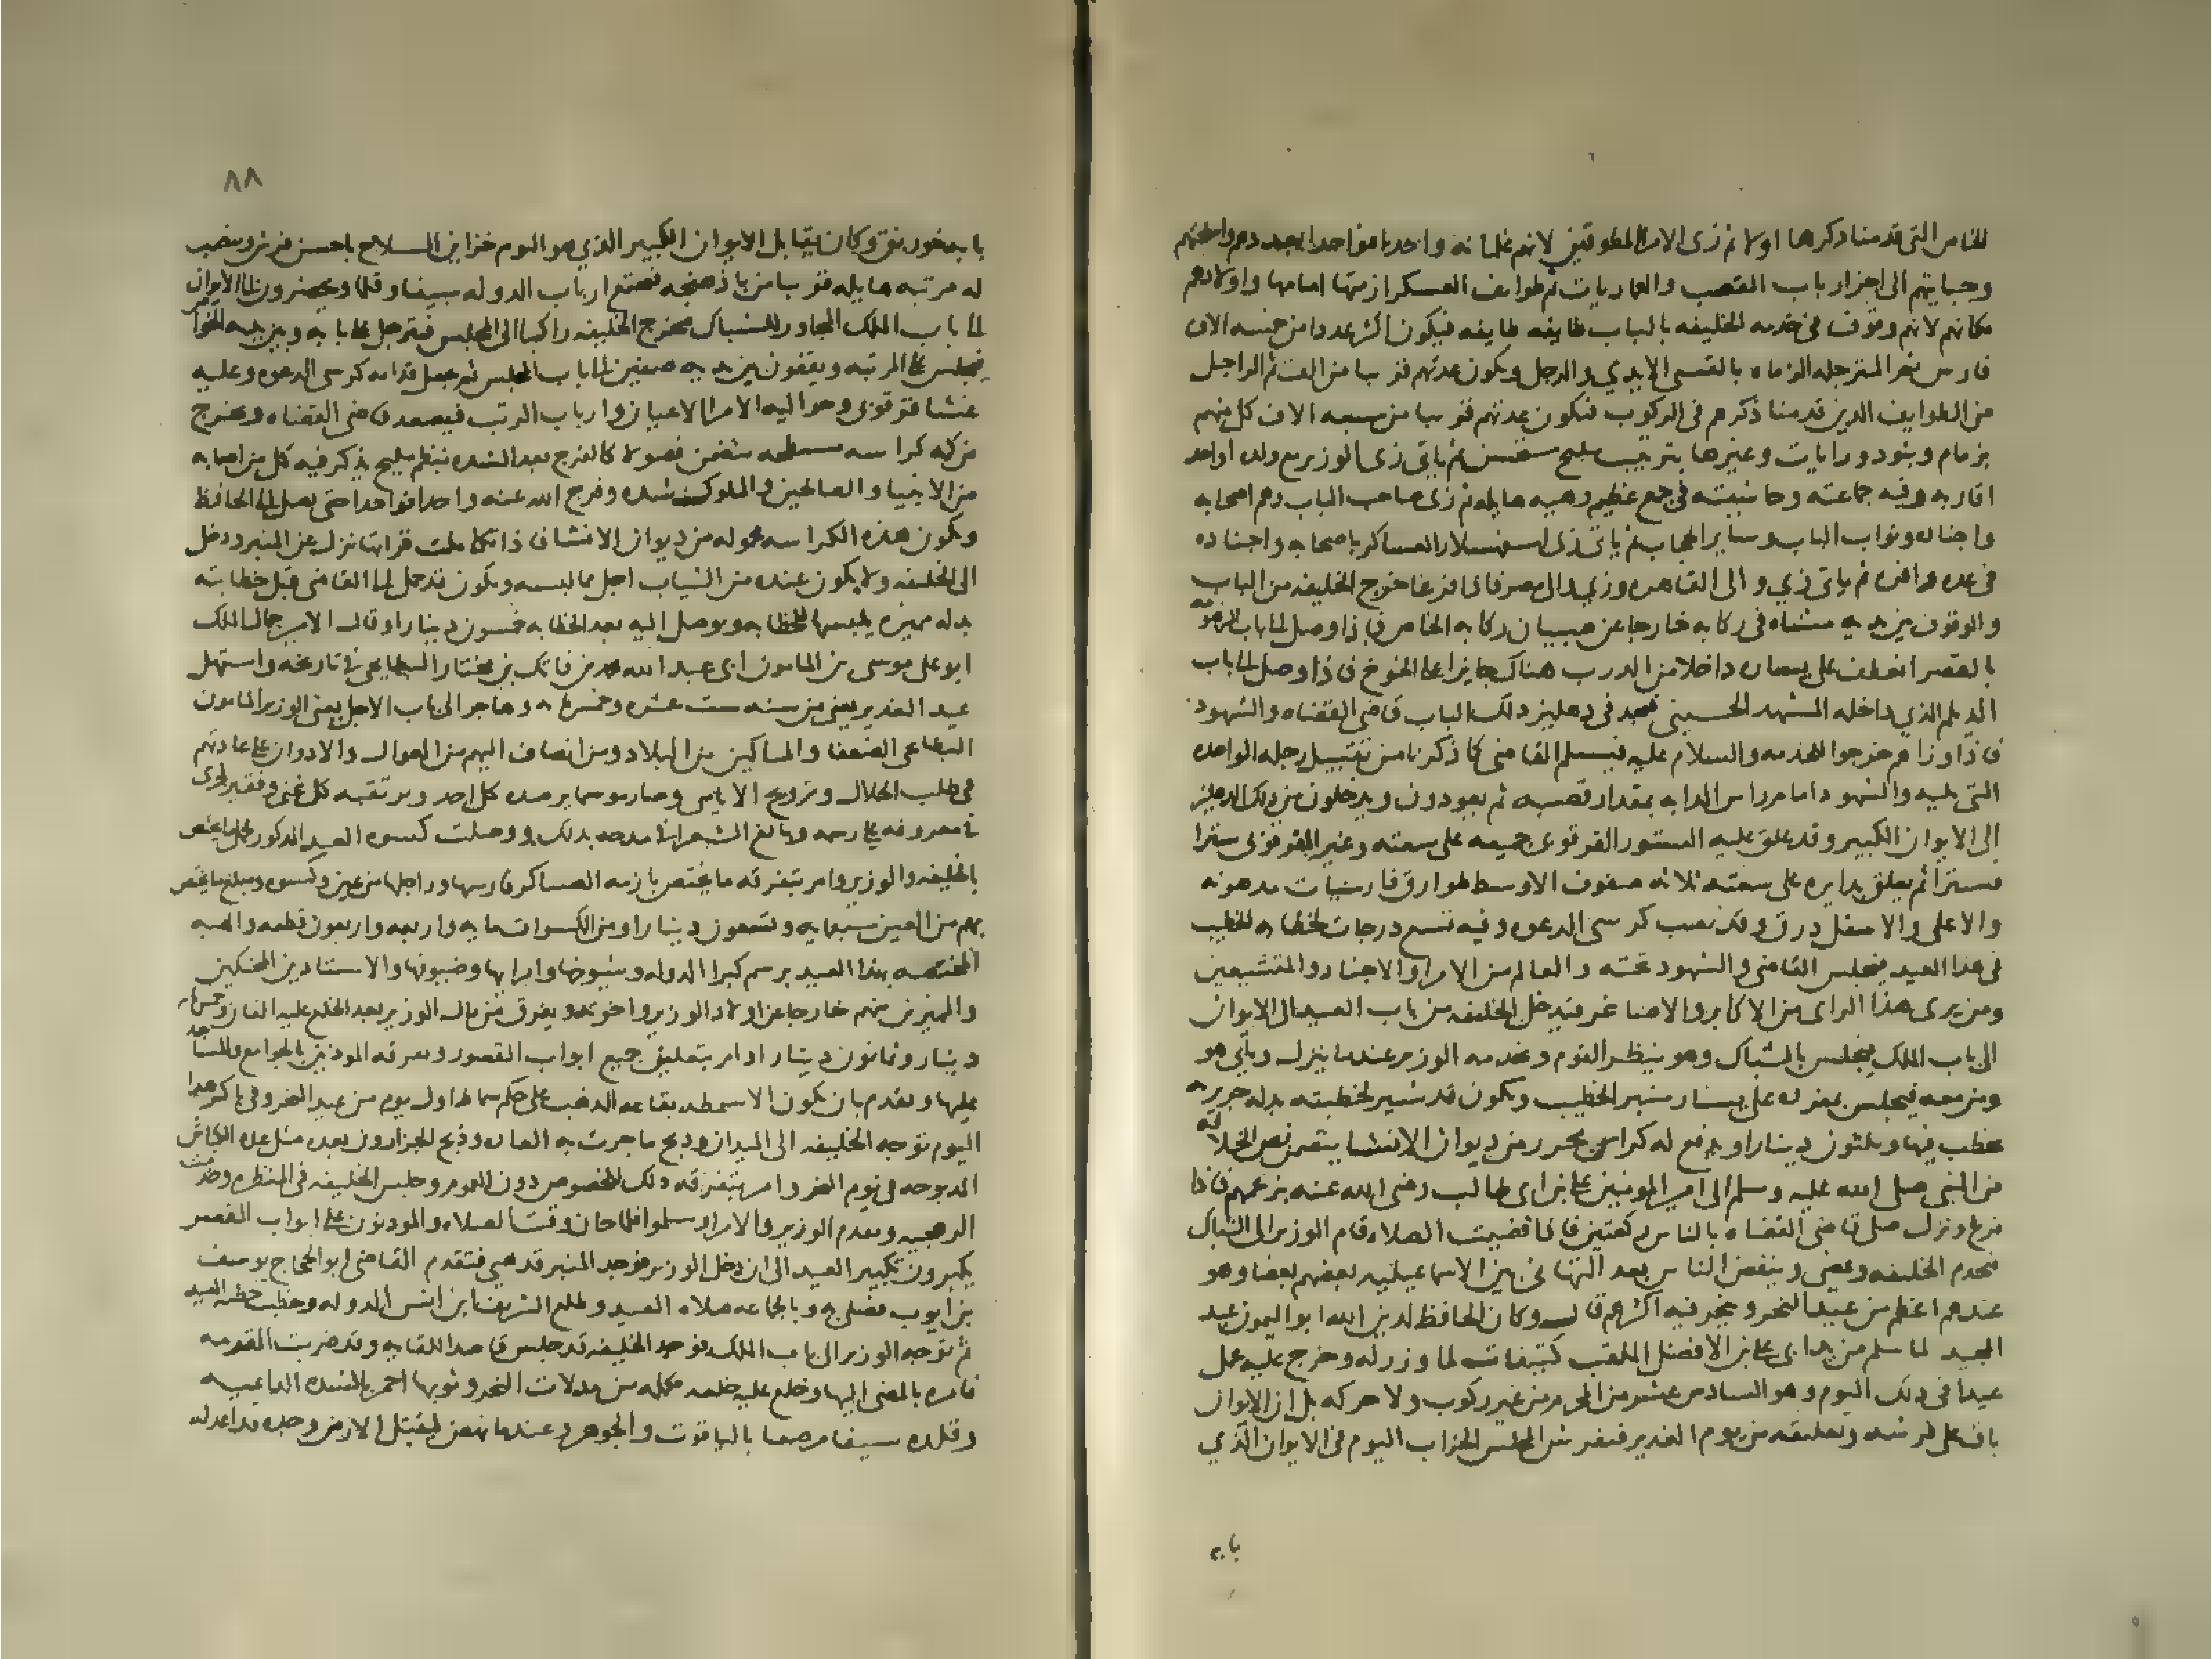 الخاص التي قدمنا ذكرها اولا ثم زى الامرا المطوقين لانهم غلمانه واحدا فواحدا بعددهم واسلحتهم
وجنايبهم الى اخر ارباب القصب والعماريات ثم طوايف العسكر ازمتها امامها واولادهم
مكانهم لانهم وقوف فى خدمه الخليفه بالباب طايفه طايفه فيكون اكثر عددا من خمسه الاف
فارس ثم المترجله الرماه بالقسى الايدي والرجل ويكون عدتهم قريبا من الف ثم الراجل
من الطوايف الذين قدمنا ذكرهم فى الركوب فتكون عدتهم قريبا من سبعه الاف كل منهم
بزمام وبنود ورايات وغيرها بترتيب مليح مستحسن ثم ياتى زى الوزير مع ولده او احد
اقاربه وفيه جماعته وحاشيته فى جمع عظيم وهيبه هايله ثم زى صاحب الباب وهم اصحابه
واجناده ونواب الباب وساير الحجاب ثم ياتى زى اسفهسلار العساكر باصحابه واجناده
فى عده وافره ثم ياتى زي والى القاهره وزي والى مصر فاذا فرغا خرج الخليفه من الباب
والوقوف بين يديه مشاه فى ركابه خارجا عن صبيان ركابه الخاص فاذا وصل لى باب الزهومه
بالقصر انعطف على يساره داخلا من الدرب هناك جايزا على الخوخ فاذا وصل لى باب
الديلم الذي داخله المشهد الحسيني فيجد فى دهليز ذلك الباب قاضي القضاه والشهود
فاذا وازاهم خرجوا للخدمه والسلام عليه فيسلم القاضى كما ذكرنا من تقبيل رجله الواحده
التى تليه والشهود امام راس الدابه بمقدار قصبه ثم يعودون ويدخلون من ذلك الدهليز
الى الايوان الكبير وقد علق عليه الستور القرقوبى جميعه على سعته وغير القرقوبى سترا
فسترا ثم يعلق بدايره على سعته ثلاثه صفوف الاوسط طوارق فارسيات مدهونه
والاعلى والاسفل درق وقد نصب كرسى الدعوه وفيه تسع درجات لخطابه الخطيب
فى هذا العيد فيجلس القاضي والشهود تحته والعالم من الامرا والاجناد والمتشيعين
ومن يرى هذا الراى من الاكابر والاصاغر فيدخل الخليفه من باب العيد الى الايوان
الى باب الملك فيجلس بالشباك وهو ينظر القوم ويخدمه الوزير عندما ينزل وياتي هو
ومن معه فيجلس بمفرده على يسار منبر الخطيب ويكون قد سير لخطيبه بدله حرير
يخطب فيها وثلثون دينارا ويدفع له كراس محرر من ديوان الانشا يتضمن نص الخلافه
من النبى صلى الله عليه وسلم الى امير المومنين على بن ابى طالب رضى الله عنه بزعمهم فاذا
فرغ ونزل صلى قاضى القضاه بالناس ركعتين فاذا قضيت الصلاه قام الوزير الى الشباك
فيخدم الخليفه ويمضي وينفض الناس بعد التهانى بين الاسماعيليه بعضهم بعضا وهو
عندهم اعظم من عيد النحر وينحر فيه اكثرهم قال وكان الحافظ لدين الله ابو الميمون عبد
المجيد لما سلم من يد ابى على بن الافضل الملقب كتيفات لما وزر له وخرج عليه عمل
عيدا فى ذلك اليوم وهو السادس عشر من المحرم من غير ركوب ولا حركه بل ان الايوان
باق على فرشه وتعليقه من يوم الغدير فيفرش المجلس المحراب اليوم فى الايوان الذي
بابه
٨٨
بابه خورنق وكان يقابل الايوان الكبير الذي هو اليوم خزاين السلاح باحسن فرش وينصب
له مرتبه هايله قريبا من باذهنجه فيجتمع ارباب الدوله سيفا وقلما ويحضرون الى الايوان
الى باب الملك المجاور للشباك فيخرج الخليفه راكبا الى المجلس فيترجل على بابه وبين يديه الخواص
فيجلس على المرتبه ويقفون بين يديه صفين الى باب المجلس ثم يجعل قدامه كرسى الدعوه وعليه
غشا قرقوبى وحواليه الامرا الاعيان وارباب الرتب فيصعد قاضى القضاه ويخرج
من كمه كراسه مسطحه تتضمن فصولا كالفرج بعد الشده بنظم مليح يذكر فيه كل من اصابه
من الانبيا والصالحين والملوك شده وفرج الله عنه واحدا فواحدا حتى يصل الى الحافظ
وتكون هذه الكراسه محموله من ديوان الانشا فاذا تكاملت قراتها نزل عن المنبر ودخل
الى الخليفه ولا يكون عنده من الثياب اجل مما لبسه ويكون قد حمل الى القاضى قبل خطابته
بدله مميزه يلبسها للخطابه ويوصل اليه بعد الخطابه خمسون دينارا وقال الامير جمال الملك
ابو على موسى بن المامون ابى عبد الله محمد بن فاتك بن مختار البطايحى فى تاريخه واستهل
عيد الغدير يعنى من سنه ست عشره وخمسمايه وهاجر الى باب الاجل يعنى الوزير المامون
البطايحى الضعفا والمساكين من البلاد ومن انضاف اليهم من العوال والادوان على عادتهم
فى طلب الحلال وتزويج الايامى وصار موسما يرصده كل احد ويرتقبه كل غنى وفقير فجرى
فى معروفه على رسمه وبالغ الشعرا فى مدحه بذلك ووصلت كسوه العيد المذكور فحمل ما يختص
بالخليفه والوزير وامر بتفرقه ما يختص بازمه العساكر فارسها وراجلها من عين وكسوه ومبلغ ما يختص
بهم من العين سبعمايه وتسعون دينارا ومن الكسوات مايه واربعه واربعون قطعه والهيبه
المختصه بهذا العيد برسم كبرا الدوله وشيوخها وامرايها وضيوفها والاستادين المحنكين
والمميزين منهم خارجا عن اولاد الوزير واخوته ويفرق من مال الوزير بعد الخلع عليه الفان وخمسمايه
دينار وثمانون دينارا وامر بتعليق جميع ابواب القصور وتفرقه الموذنين بالجوامع والمساجد
عليها وتقدم بان تكون الاسمطه بقاعه الذهب على حكم سماط اول يوم من عيد النحر وفى باكر هذا
اليوم توجه الخليفه الى الميدان وذبح ما جرت به العاده وذبح الجزارون بعده مثل عدد الكباش
المذبوحه فى يوم النحر وامر بتفرقه ذلك للخصوص دون العموم وجلس الخليفه فى المنظره وخدمت
الرهجيه وتقدم الوزير والامرا وسلموا فلما حان وقت الصلاه والموذنون على ابواب القصر
يكبرون تكبير العيد الى ان دخل الوزير فوجد المنبر قد هيى فتقدم القاضي ابو الحجاج يوسف
بن ايوب فصلى به وبالجماعه صلاه العيد وطلع الشريف ابن انس الدوله وخطب خطبه العيد
ثم توجه الوزير الى باب الملك فوجد الخليفه قد جلس قاصدا للقايه وقد ضربت المقدمه
فامره بالمضي اليها وخلع عليه خلعه مكمله من بدلات النحر وثوبها احمر بالشده الداعيه
وقلده سيفا مرصعا بالياقوت والجوهر وعندما نهض ليقبل الارض وجده قد اعد له